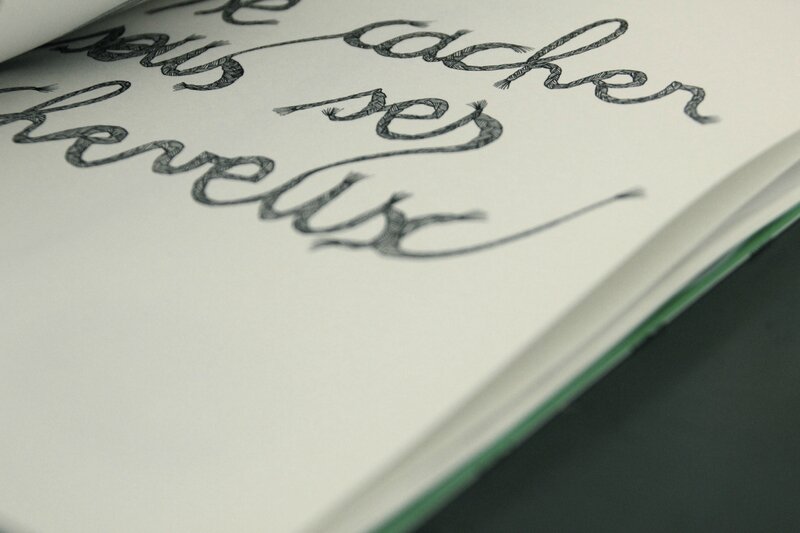 se cacher
sous ses
cheveux